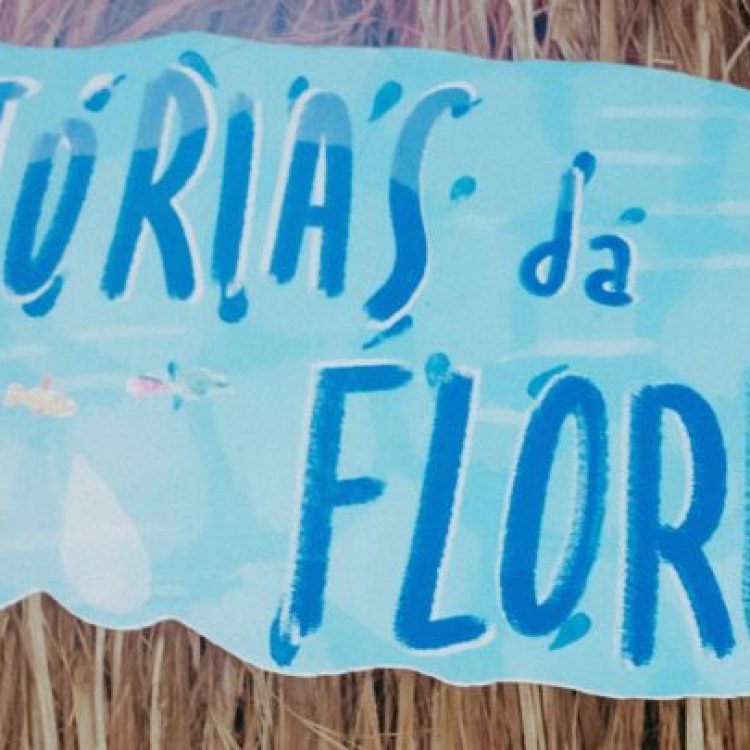 TÓRIAS da
FLOR